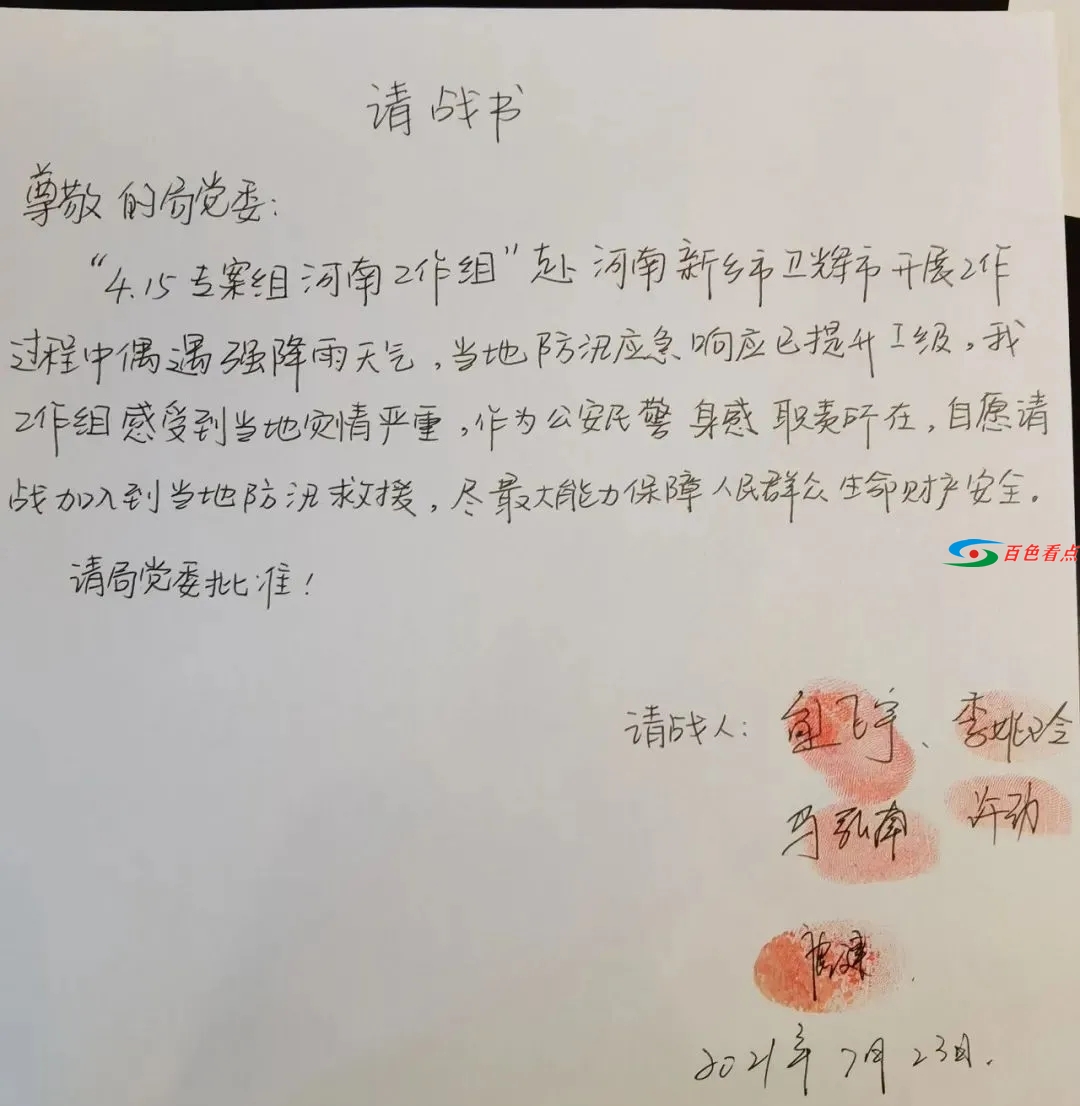 请战书
尊敬的局党委：
“4.15专案组河南工作组”赴河南新乡市卫辉市开展工作
过程中偶遇强降雨天气，当地防汛应急响应已提升I级，我
工作组感受到当地灾情严重，作为公安民警身感职责所在，自愿请
战加入到当地防汛救援，尽最大能力保障人民群众生命财产安全。
百色看点
请局党委批准！
请战人： 飞宇、李姚玲
马弘南 许劲
健
2021年7月23日.